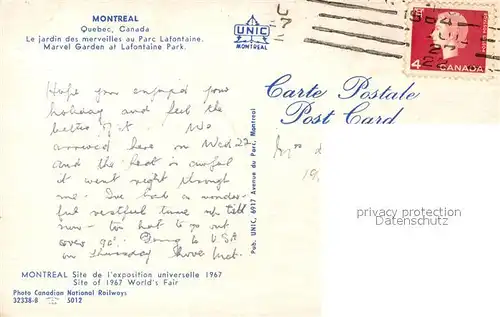 MONTREAL
Quebec, Canada
Le jardin des merveilles au Parc Lafontaine.
Marvel Garden at Lafontaine Park.
UNIC
MONTREAL
4
CANADA
Carte Postale
Post Card
Hope you enjoyed your
holiday and feel the
better of it. We
arrived here on Wed 22
and the heat is awful
it went right through
me. I've had a wonder-
ful restful time up till
now - too hot to go out
over 90°. Going to USA
on Thursday
Pub. UNIC, 6917 Avenue du Parc, Montreal
privacy protection
Datenschutz
MONTREAL Site de l'exposition universelle 1967
Site of 1967 World's Fair
Photo Canadian National Railways
32338-B 5012